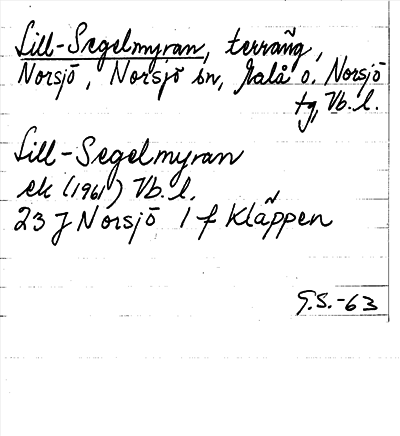 Lill-Segelmyran, terräng,
Norsjö, Norsjö sn, Malå o. Norsjö
tg, Vb. l.
Lill-Segelmyran
ek (1961) Vb. l.
23 J Norsjö 1 f Kläppen
G.S.-63